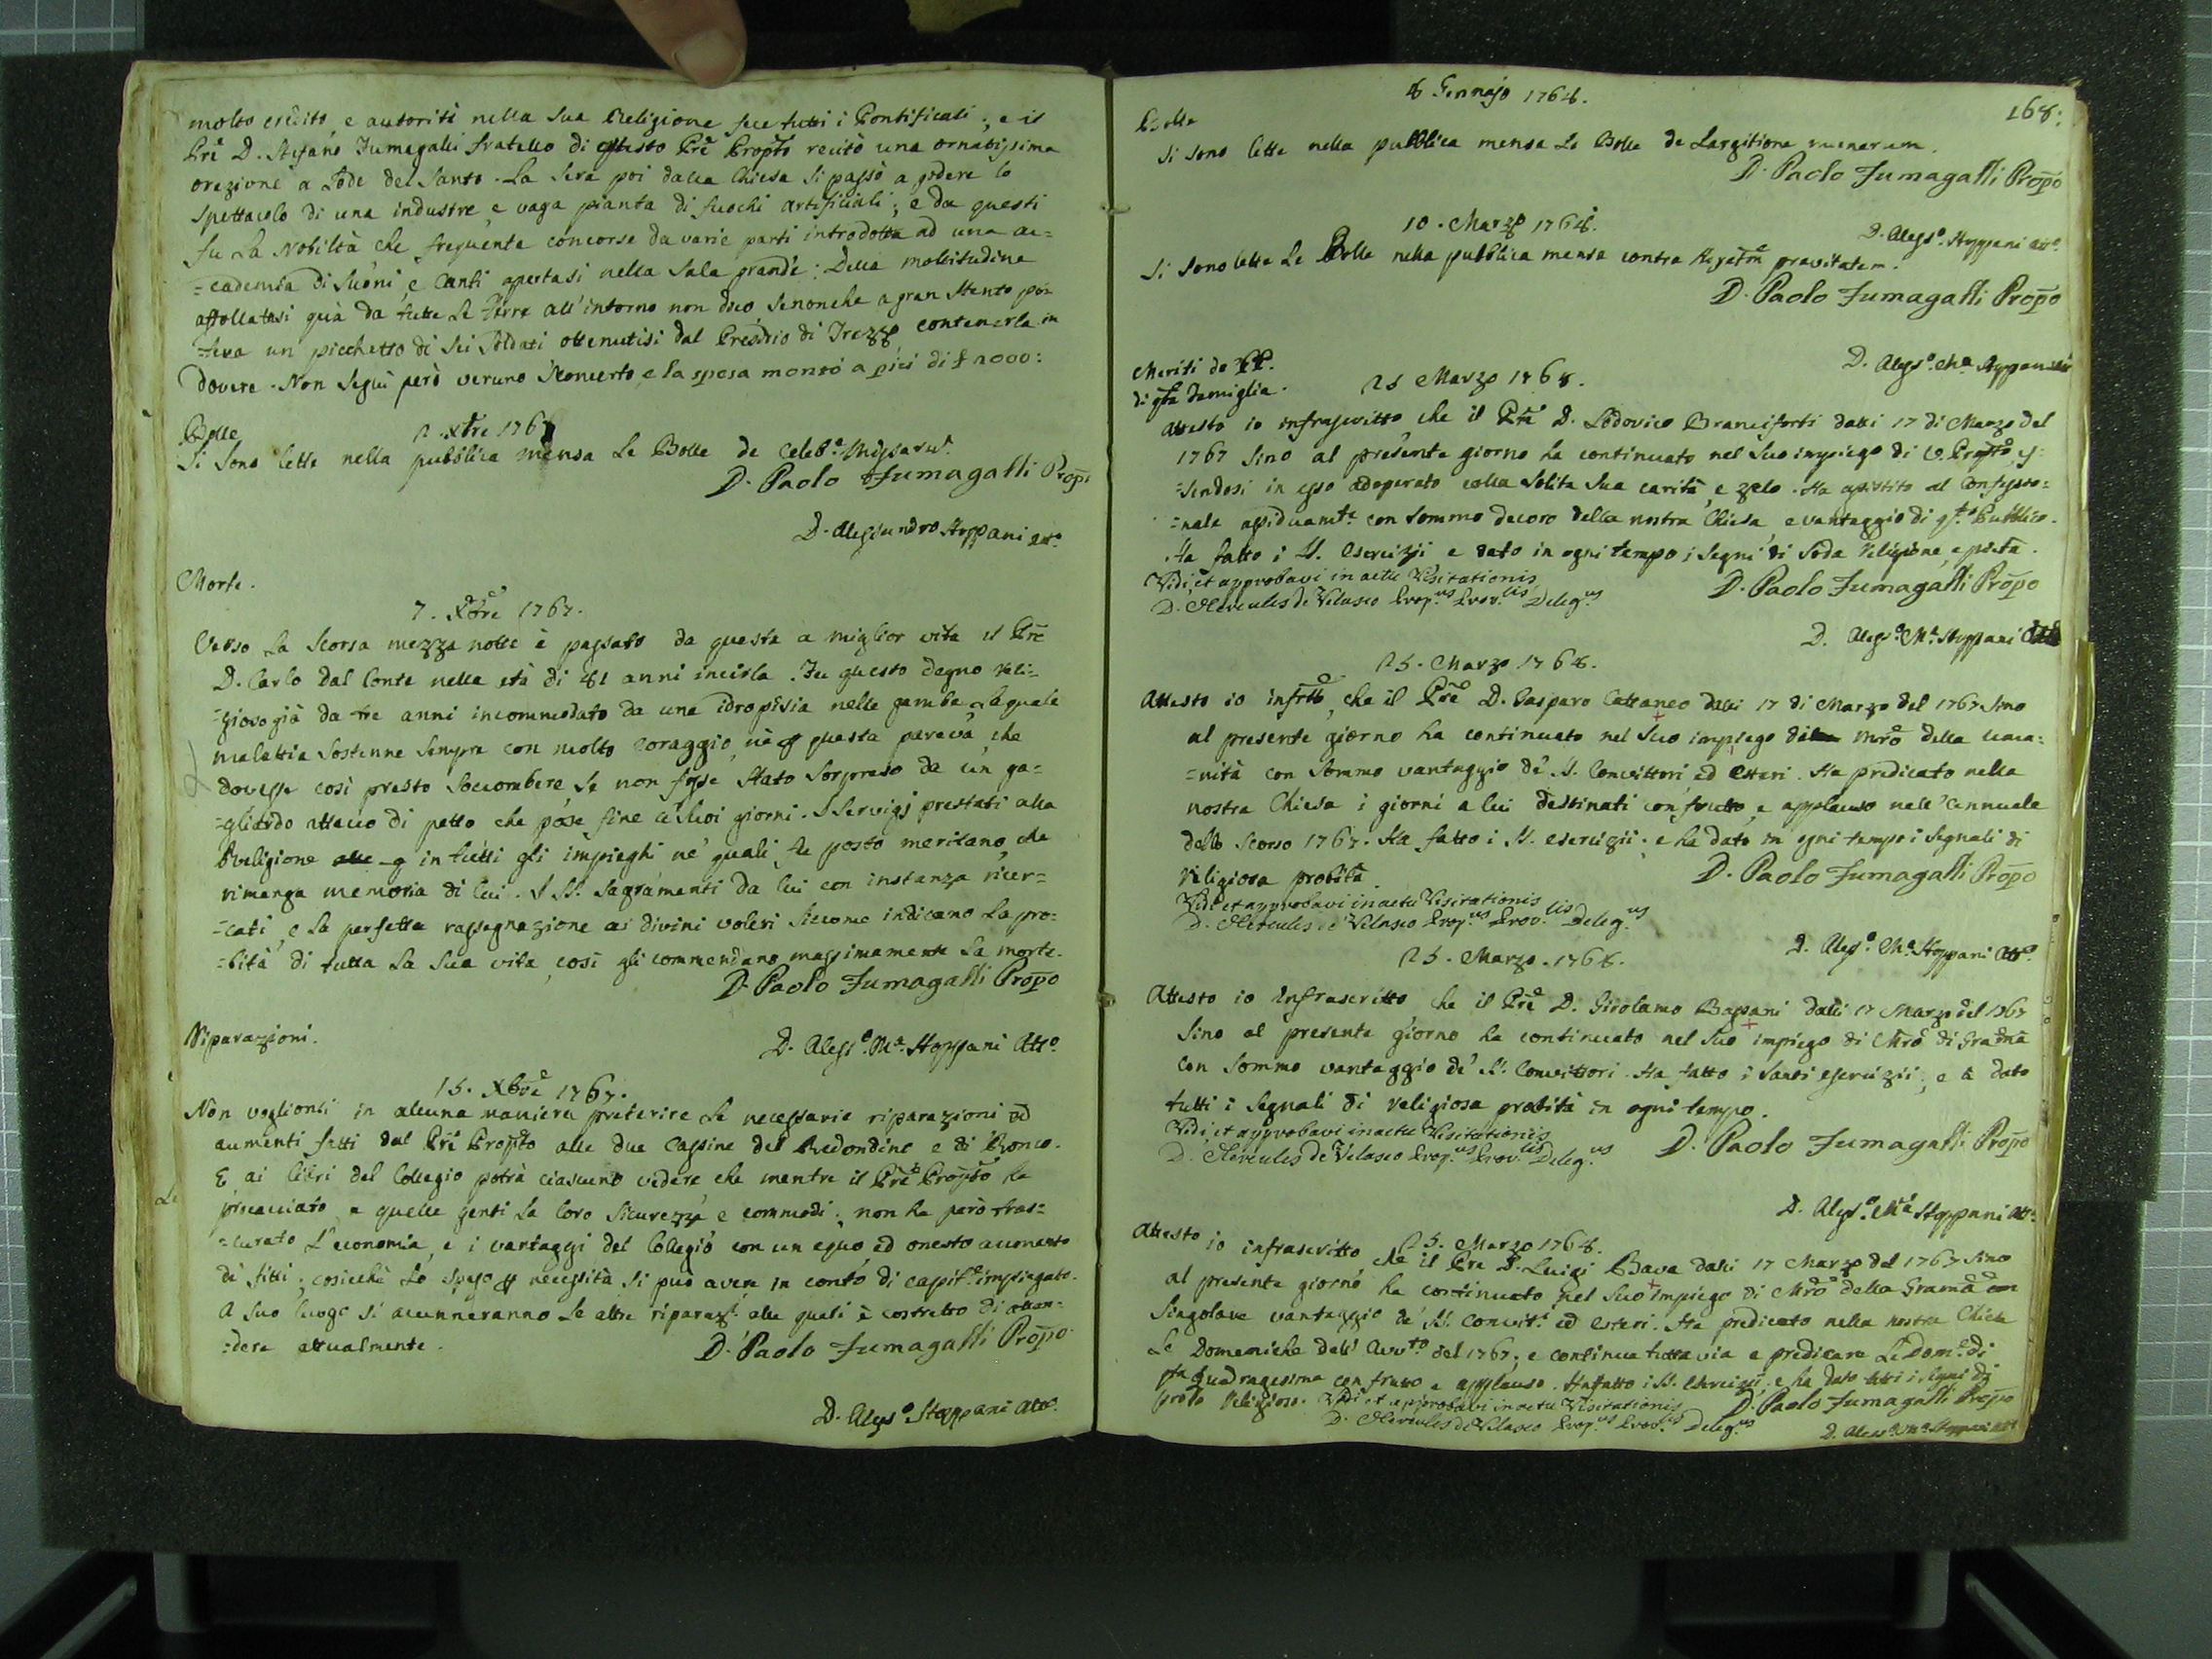 molto credito, e autorità nella sua Religione fece tutti i Pontificali; e il
Pre D. Stefano Fumagalli fratello di questo Pre Propto recitò una ornatissima
orazione a Lode del Santo. La sera poi dalla Chiesa si passò a godere lo
spettacolo di una industre, e vaga pianta di fuochi artificiali; e da questi
fu La Nobiltà che frequente concorse da varie parti introdotta ad una ac=
=cademia di Suoni, e Canti apertasi nella Sala grande. Della moltitudine
affollatasi quà da tutte Le Terre all'intorno non dico, senonchè a gran stento po=
=teva un picchetto di sei Soldati ottenutisi dal Presidio di Trezzo contenerla in
dovere. Non seguì però veruno sconcerto, e la spesa montò a più di £ 2000:
Bolle
2. Xbre 1767
Si sono lette nella pubblica mensa Le Bolle de Celeb.e Missaru.
D. Paolo Fumagalli Propo
D. Alessandro Stoppani att.o
Morte.
7. Xbre 1767.
Verso La scorsa mezza notte è passato da questa a miglior vita il Pre
D. Carlo Dal Conte nella età di 41 anni incirca. Fu questo degno reli=
=gioso già da tre anni incommodato da una idropisia nelle gambe, la quale
malattia sostenne sempre con molto coraggio, nè p questa pareva, che
dovesse così presto soccombere, se non fosse stato sorpreso da un ga=
=gliardo attacco di petto che pose fine a' suoi giorni. I servigj prestati alla
Religione in tutti gli impieghi ne' quali fu posto meritano, che
rimanga memoria di lui. I SS. Sagramenti da lui con instanza ricer=
=cati, e la perfetta rassegnazione ai divini voleri siccome indicano La pro=
=bità di tutta La sua vita, così gli commendano massimamente La morte.
D. Paolo Fumagalli Propo
D. Aless.o M.a Stoppani Att.o
Riparazioni.
15. Xbre 1767.
Non voglionsi in alcuna maniera preterire Le necessarie riparazioni ed
aumenti fatti dal Pre Propto alle due Cassine del Redondino e di Ronco.
E ai libri del Collegio potrà ciascuno vedere che mentre il Pre Propto ha
procacciato a quelle genti La loro sicurezza e commodi, non ha però tras=
=curato L'economia, e i vantaggi del Collegio con un equo ed onesto aumento
de' fitti; cosicchè Lo speso p necessità si può avere in conto di capit.e impiegato.
A suo luogo si accenneranno Le altre riparaz.i alle quali è costretto di atten=
=dere attualmente.
D. Paolo Fumagalli Propo
D. Aless.o Stoppani Att.o
168:
4 Gennajo 1768.
Bolle
Si sono lette nella pubblica mensa Le Bolle de Largitione munerum.
D. Paolo Fumagalli Propo
D. Aless.o Stoppani att.o
10. Marzo 1768.
Si sono lette Le Bolle nella pubblica mensa contra pravitatem.
D. Paolo Fumagalli Propo
D. Aless.o M.a Stoppani
Meriti de PP.
di qta Famiglia.
25 Marzo 1768.
Attesto io infrascritto, che il Pre D. Lodovico Branciforti dalli 17 di Marzo del
1767 sino al presente giorno ha continuato nel suo impiego di V. Propto, es=
=sendosi in esso adoperato colla solita sua carità, e zelo. Ha assistito al Confessio=
=nale assiduamte con sommo decoro della nostra Chiesa, e vantaggio di qto Pubblico.
Ha fatto i SS. Esercizii e dato in ogni tempo i segni di soda religione, e pietà.
Vidi, et approbavi in actu Visitationis
D. Hercules de Velasco Prop.us Prov.lis Deleg.us
D. Paolo Fumagalli Propo
D. Aless.o M.a Stoppani Att.o
25. Marzo 1768.
Attesto io infrtto, che il Pre D. Gasparo Cattaneo dalli 17 di Marzo del 1767 sino
al presente giorno ha continuato nel suo impiego di Mro della Uma=
=nità con sommo vantaggio de' SS. Convittori, ed esteri. Ha predicato nella
nostra Chiesa i giorni a lui destinati con frutto, e applauso nell'annuale
dello scorso 1767. Ha fatto i SS. esercizii; e ha dato in ogni tempo i segnali di
religiosa probità.
D. Paolo Fumagalli Propo
Vidi et approbavi in actu Visitationis
D. Hercules de Velasco Prop.us Prov.lis Deleg.us
D. Aless.o M.a Stoppani Att.o
25. Marzo. 1768.
Attesto io infrascritto, che il Pre D. Girolamo Bassani dalli 17 Marzo del 1767
sino al presente giorno ha continuato nel suo impiego di Mro di Gramca
con sommo vantaggio de' SS. Convittori. Ha fatto i Santi esercizii; e à dato
tutti i segnali di religiosa probità in ogni tempo.
Vidi, et approbavi in actu Visitationis
D. Hercules de Velasco Prop.us Prov.lis Deleg.us
D. Paolo Fumagalli Propo
D. Aless.o M.a Stoppani Att.o
25. Marzo 1768.
Attesto io infrascritto, che il Pre D. Luigi Bava dalli 17 Marzo del 1767 sino
al presente giorno ha continuato nel suo impiego di Mro della Gramca con
singolare vantaggio de' SS. Convit.i ed esteri. Ha predicato nella nostra Chiesa
Le Domeniche dell'Avv.to del 1767; e continua tuttavia a predicare Le Dom.e di
qta Quadragesima con frutto e applauso. Ha fatto i SS. Esercizii; e ha dato tutti i segni di
probo Religioso. Vidi et approbavi in actu Visitationis
D. Paolo Fumagalli Propo
D. Hercules de Velasco Prop.us Prov.lis Deleg.us
D. Aless.o M.a Stoppani Att.o